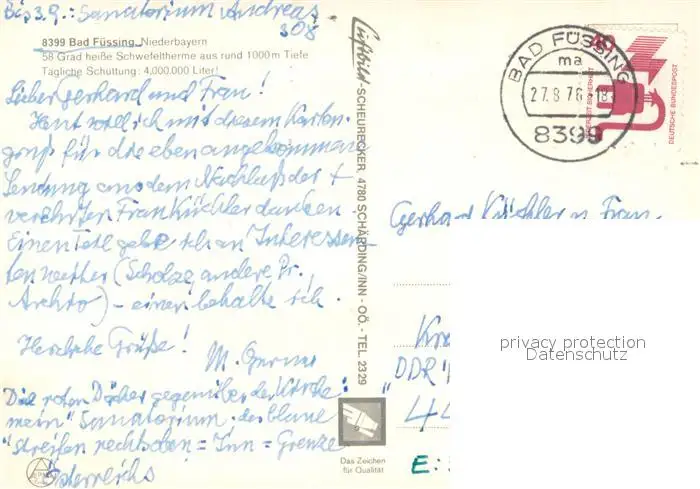 Bis 3.9.: Sanatorium Andreas
308
8399 Bad Füssing, Niederbayern
58 Grad heiße Schwefeltherme aus rund 1000 m Tiefe
Tägliche Schüttung: 4,000.000 Liter!
Lieber Gerhard und Frau!
Heut will ich mit diesem Karten-
gruß für die eben angekommene
Sendung aus dem Nachlaß der +
verehrten Frau Küchler danken.
Einen Teil gebe ich an Interessen-
ten weiter (Scholze, andere Pr.
Archiv) – einen behalte ich.
Herzliche Grüße!
M.
Die roten Dächer gegenüber der Kirche:
"mein" Sanatorium. der blaue
Streifen rechts oben = Inn = Grenze
Österreichs
Luftbild-SCHEURECKER, 4780 SCHÄRDING/INN - OÖ. - TEL. 2329
Das Zeichen
für Qualität
BAD FÜSSING
ma
27.8.76-18
8399
DEUTSCHE BUNDESPOST
Gerhard Küchler u. Frau
"DDR"
44
E:
privacy protection
Datenschutz